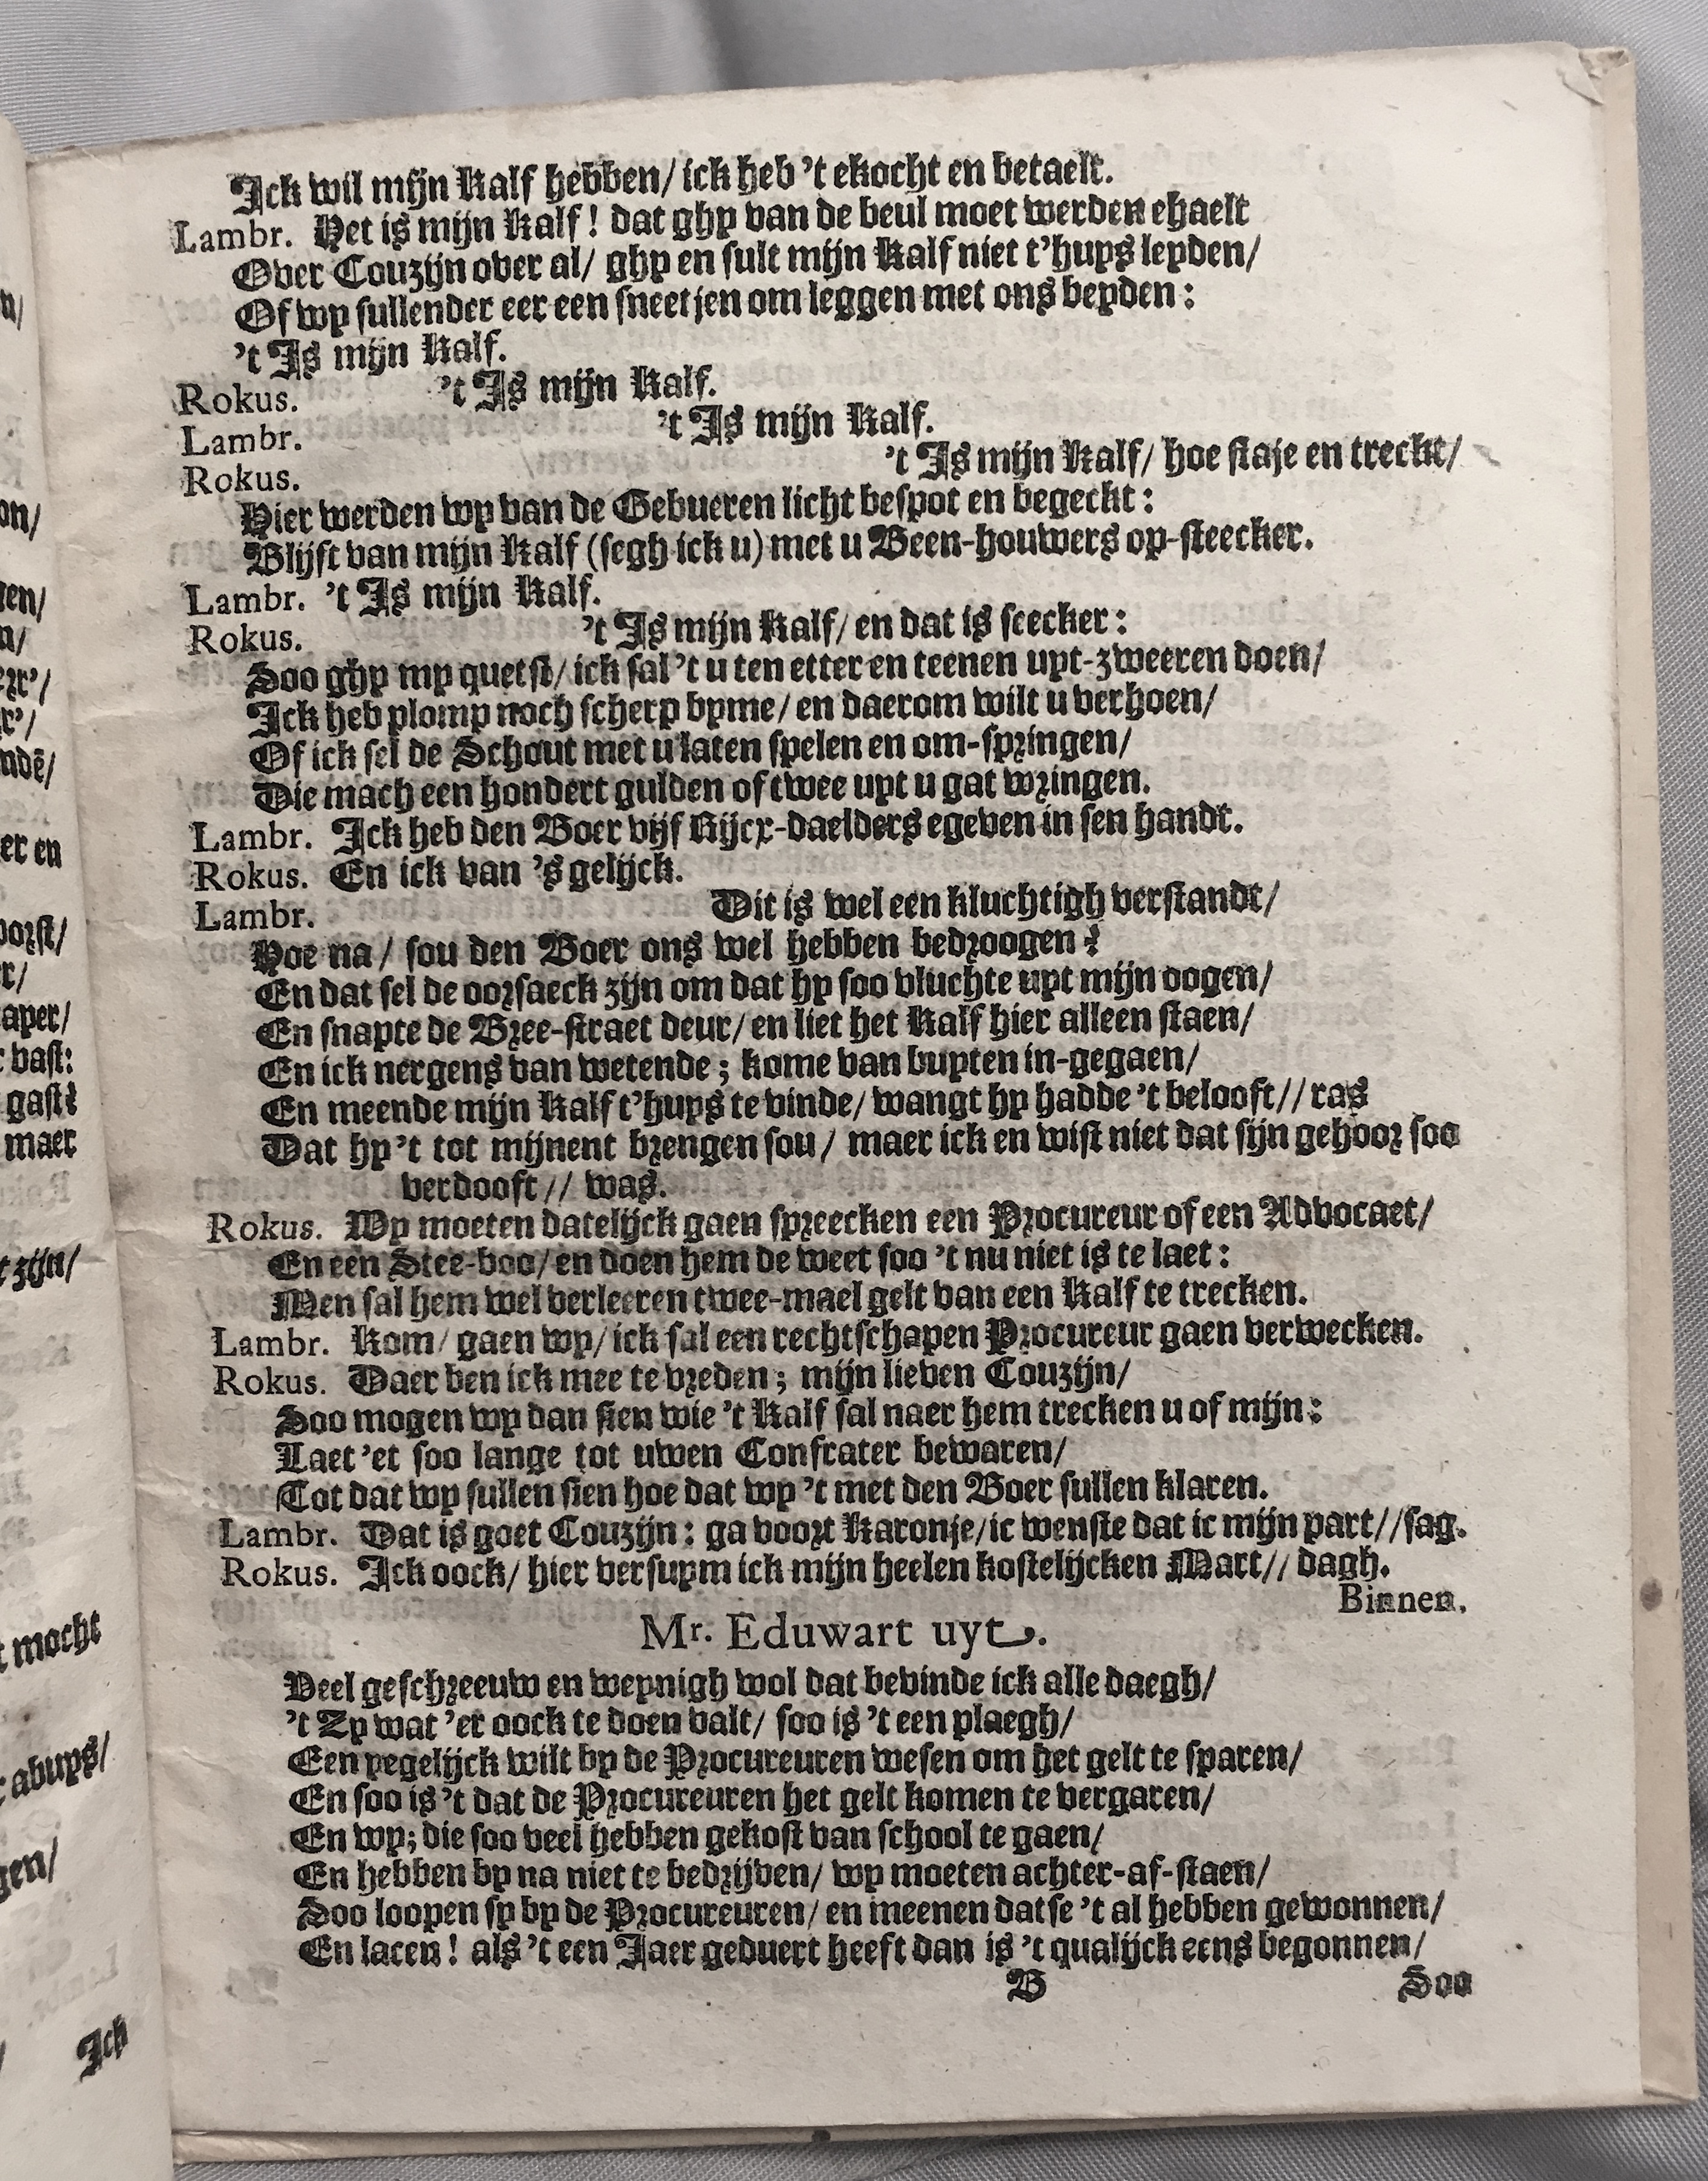 Ick wil mijn Kalf hebben/ ick heb 't ekocht en betaelt.
Lambr. Het is mijn Kalf! dat ghy van de beul moet werden ehaelt
Over Couzijn over al/ ghy en sult mijn Kalf niet t'huys leyden/
Of wy sullender eer een sneetjen om leggen met ons beyden:
't Is mijn Kalf.
Rokus. 't Is mijn Kalf.
Lambr. 't Is mijn Kalf.
Rokus. 't Is mijn Kalf/ hoe staje en treckt/
Hier werden wy van de Gebueren licht bespot en begeckt:
Blijft van mijn Kalf (segh ick u) met u Been-houwers op-steecker.
Lambr. 't Is mijn Kalf.
Rokus. 't Is mijn Kalf/ en dat is seecker:
Soo ghy my quetst/ ick sal 't u ten etter en teenen uyt-zweeren doen/
Ick heb plomp noch scherp byme/ en daerom wilt u verhoen/
Of ick sel de Schout met u laten spelen en om-springen/
Die mach een hondert gulden of twee uyt u gat wringen.
Lambr. Ick heb den Boer vijf Rijcx-daelders egeven in sen handt.
Rokus. En ick van 's gelijck.
Lambr. Dit is wel een kluchtigh verstandt/
Hoe na/ sou den Boer ons wel hebben bedroogen?
En dat sel de oorsaeck zijn om dat hy soo vluchte uyt mijn oogen/
En snapte de Bree-straet deur/ en liet het Kalf hier alleen staen/
En ick nergens van wetende; kome van buyten in-gegaen/
En meende mijn Kalf t'huys te vinde/ wangt hy hadde 't belooft// ras
Dat hy 't tot mijnent brengen sou/ maer ick en wist niet dat sijn gehoor soo
verdooft// was.
Rokus. Wy moeten datelijck gaen spreecken een Procureur of een Advocaet/
En een Stee-boo/ en doen hem de weet soo 't nu niet is te laet:
Men sal hem wel verleeren twee-mael gelt van een Kalf te trecken.
Lambr. Kom/ gaen wy/ ick sal een rechtschapen Procureur gaen verwecken.
Rokus. Daer ben ick mee te vreden; mijn lieven Couzijn/
Soo mogen wy dan sien wie 't Kalf sal naer hem trecken u of mijn:
Laet 'et soo lange tot uwen Confrater bewaren/
Tot dat wy sullen sien hoe dat wy 't met den Boer sullen klaren.
Lambr. Dat is goet Couzijn: ga voort Karonje/ ic wenste dat ic mijn part//sag.
Rokus. Ick oock/ hier versuym ick mijn heelen kostelijcken Mart// dagh.
Binnen.
Mr. Eduwart uyt.
Veel geschreeuw en weynigh wol dat bevinde ick alle daegh/
't Zy wat 'er oock te doen valt/ soo is 't een plaegh/
Een yegelijck wilt by de Procureuren wesen om het gelt te sparen/
En soo is 't dat de Procureuren het gelt komen te vergaren/
En wy; die soo veel hebben gekost van school te gaen/
En hebben by na niet te bedrijven/ wy moeten achter-af-staen/
Soo loopen sy by de Procureuren/ en meenen datse 't al hebben gewonnen/
En lacen! als 't een Jaer geduert heeft dan is 't qualijck eens begonnen/
B Soo
on/
maer
zijn/
mocht
abuys/
Ick